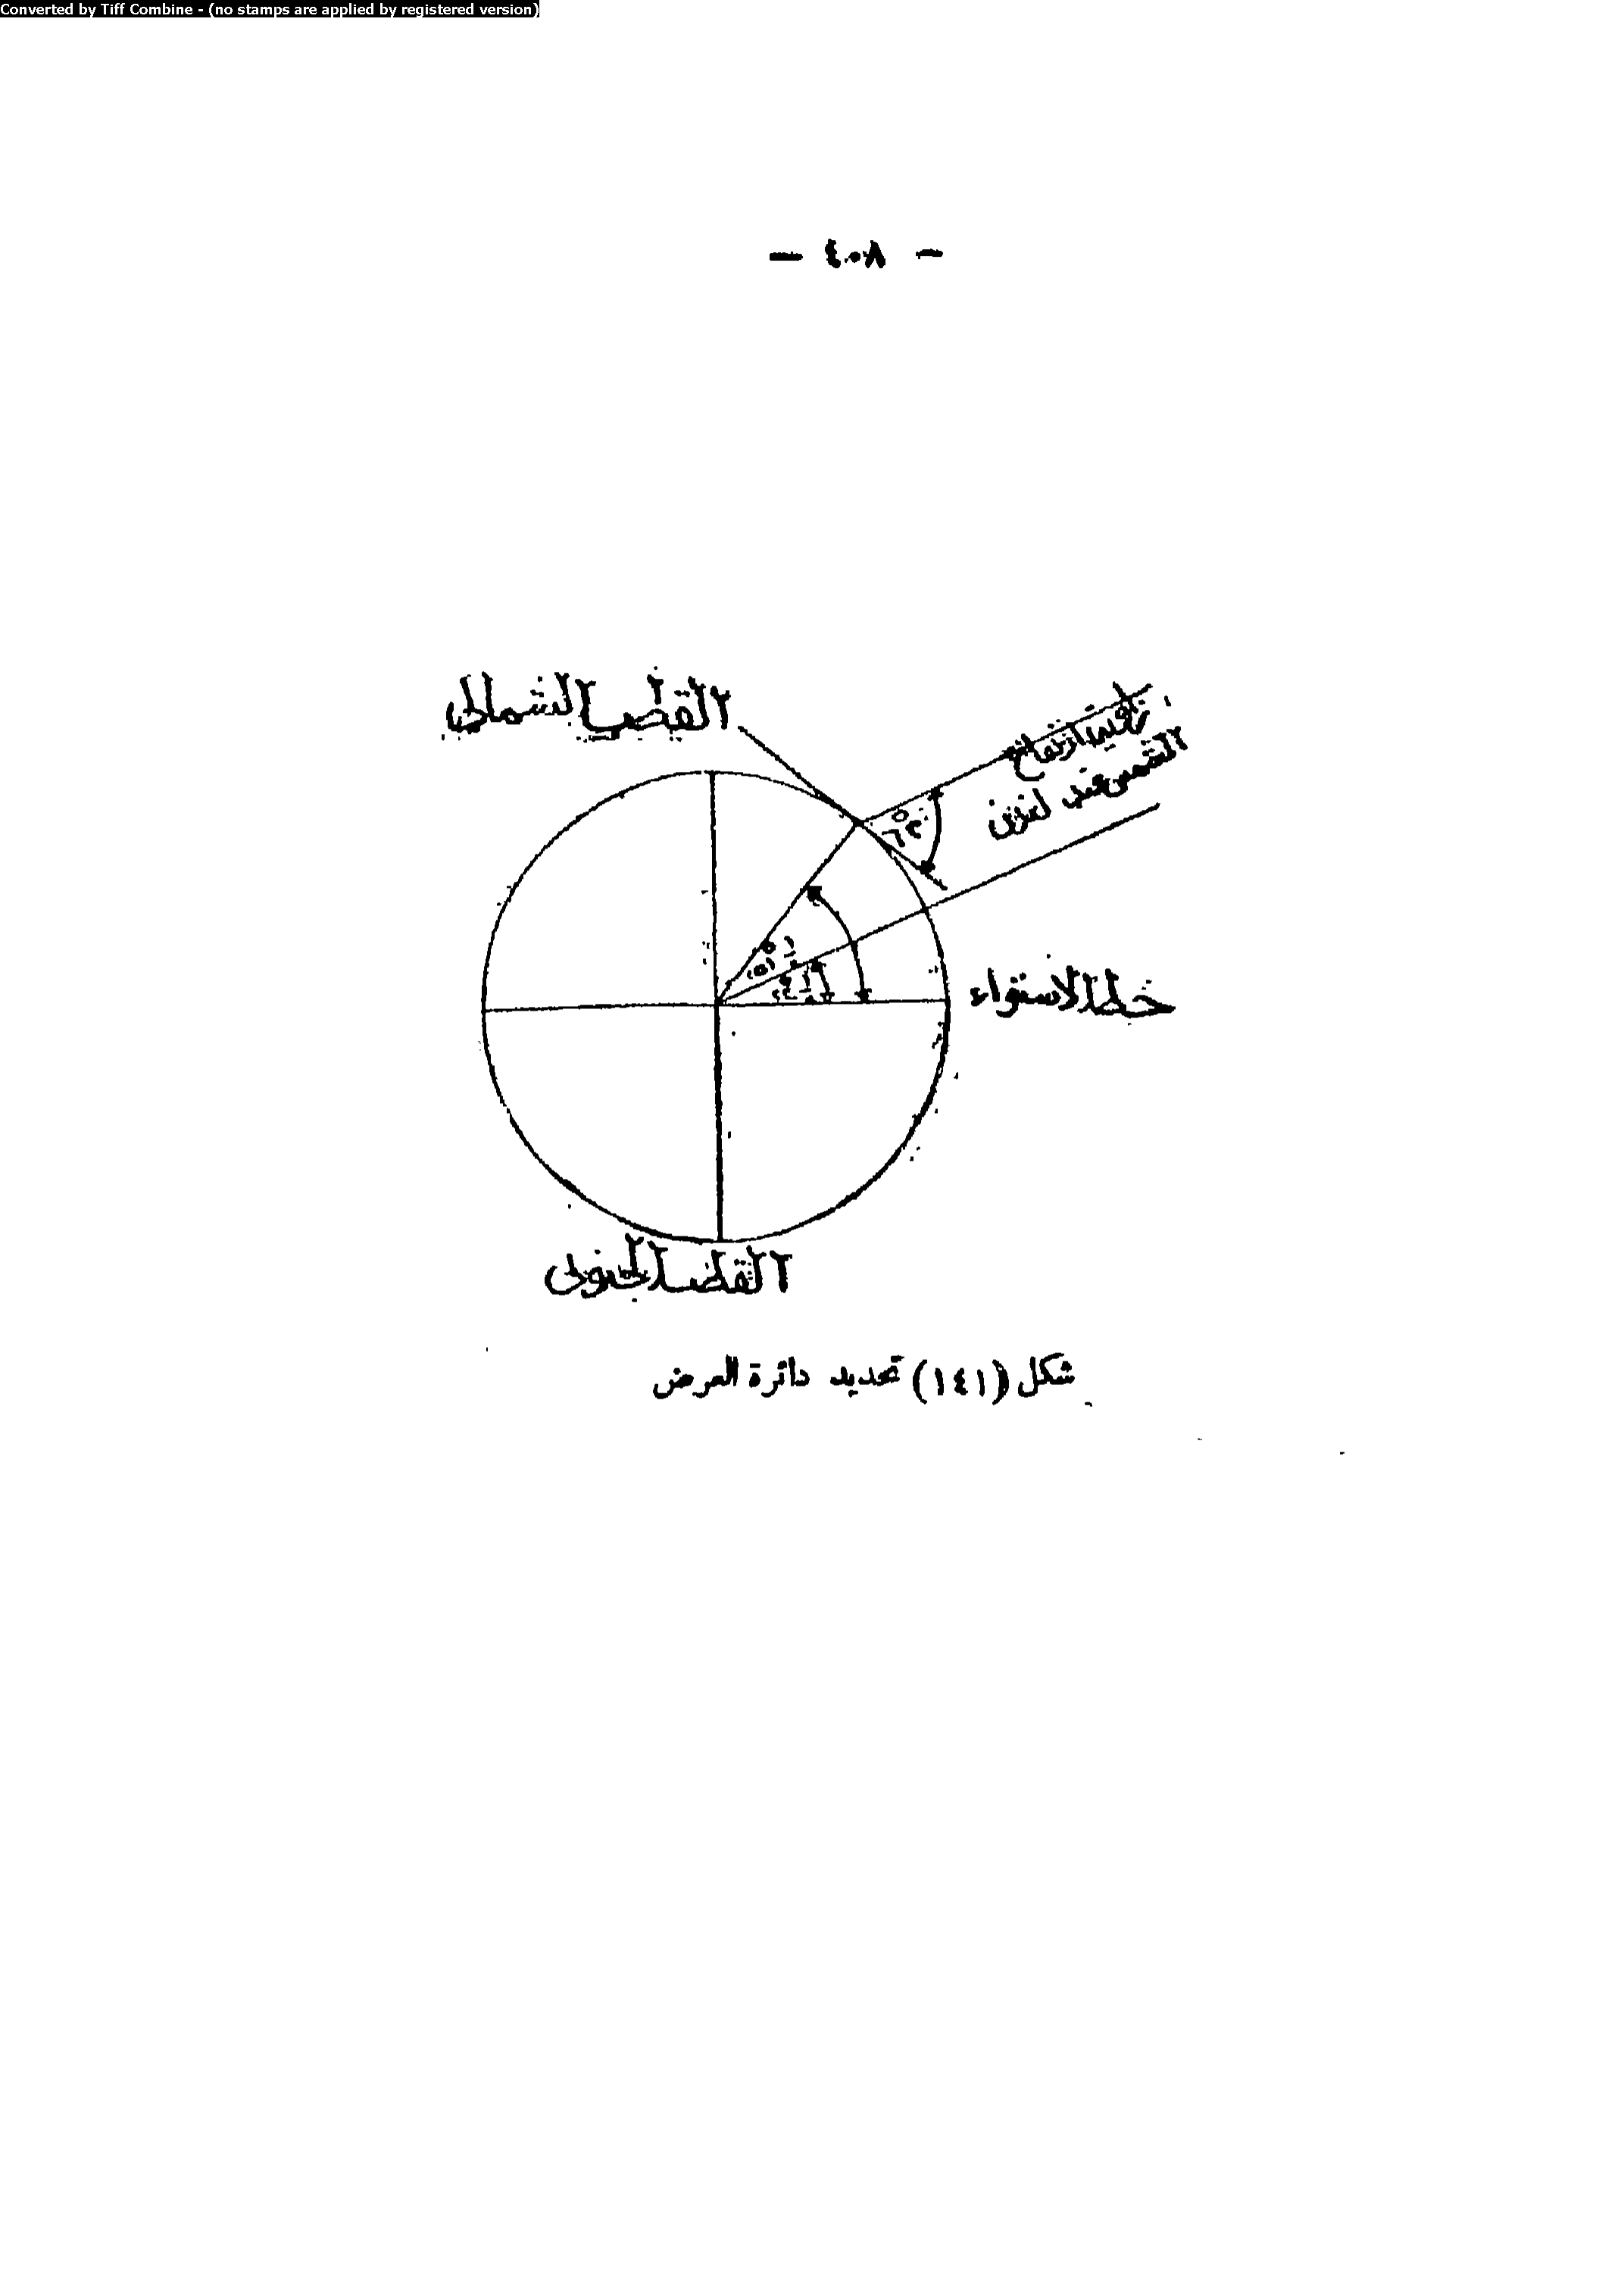 Converted by Tiff Combine - (no stamps are applied by registered version)
— ٤٠٨ —
القطب الشمالى
زاوية ارتفاع
الشمس عند لندن
٦٢°
٥١ ١/٢°
٢٣ ١/٢°
خط الاستواء
القطب الجنوبى
شكل (١٤١) تحديد دائرة العرض